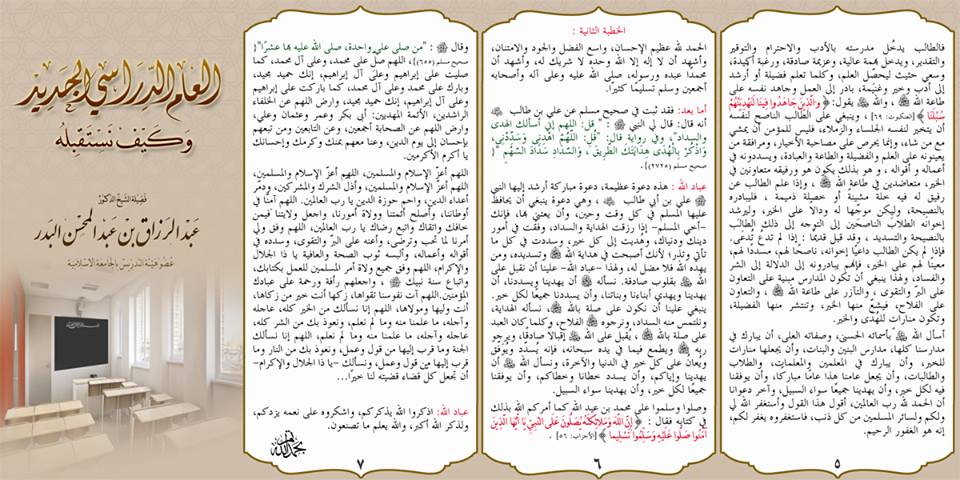 فالطالب يدخُل مدرسته بالأدب والاحترام والتوقير
والتقدير، ويدخل بهمة عالية، وعزيمة صادقة، ورغبة أكيدة،
وسعي حثيث ليحصّل العلم، وكلما تعلم فضيلة أو أرشد
إلى أدب وخير وغنيمة، بادر إلى العمل وجاهد نفسه على
طاعة الله ﷻ، والله ﷻ يقول: ﴿وَالَّذِينَ جَاهَدُوا فِينَا لَنَهْدِيَنَّهُمْ
سُبُلَنَا﴾ [العنكبوت: ٦٩]، وينبغي على الطالب الناصح لنفسه
أن يتخير لنفسه الجلساء والزملاء، فليس للمؤمن أن يمشي
مع من شاء، وإنما يحرص على مصاحبة الأخيار، ومرافقة من
يعينونه على العلم والفضيلة والطاعة والعبادة، ويسددونه في
أعماله و أقواله، و هو بذلك يكون هو ورفيقه متعاونين في
الخير، متعاضدين في طاعة الله ﷻ، وإذا علم الطالب عن
رفيق له فيه خلة مشينة أو خصلة ذميمة، فليبادره
بالنصيحة، وليكن موجّها له ودالا على الخير، وليرشد
إخوانه الطلاب الناصحين إلى التوجه إلى ذلك الطالب
بالنصيحة والتسديد، وقد قيل قديما: إذا لم تَدْع تُدْعَى،
فإذا لم يكن الطالب داعيا إخوانه، ناصحا لهم، مسددا لهم،
معينا لهم على الخير، فإنهم يبادرونه إلى الدلالة إلى الشر
والفساد، ولهذا ينبغي أن تكون المدارس مبنية على التعاون
على البر والتقوى، والتآزر على طاعة الله ﷻ، والتعاون
على الفلاح، فيشيع منها الخير، وتنتشر منها الفضيلة،
وتكون منارات للهدى والخير.
أسأل الله ﷻ بأسمائه الحسنى، وصفاته العلى، أن يبارك في
مدارسنا كلها، مدارس البنين والبنات، وأن يجعلها منارات
للخير، وأن يبارك في المعلمين والمعلمات، والطلاب
والطالبات، وأن يجعل عامنا هذا عاما مباركا، وأن يوفقنا
فيه لكل خير، وأن يهدينا جميعًا سواء السبيل. وآخر دعوانا
أن الحمد لله رب العالمين، أقول هذا القول وأستغفر الله لي
ولكم ولسائر المسلمين من كل ذنب، فاستغفروه يغفر لكم،
إنه هو الغفور الرحيم.
٥
الخطبة الثانية :
الحمد لله عظيم الإحسان، واسع الفضل والجود والامتنان،
وأشهد أن لا إله إلا الله وحده لا شريك له، وأشهد أن
محمدا عبده ورسوله، صلى الله عليه وعلى آله وأصحابه
أجمعين وسلم تسليمًا كثيرًا.
أما بعد: فقد ثبت في صحيح مسلم عن علي بن طالب
أنه قال: قال لي النبي ﷺ: "قل: اللهم إني أسألك الهدى
والسداد"، وفي رواية قال: "قُلْ: اللَّهُمَّ اهْدِنِي وَسَدِّدْنِي،
وَاذْكُرْ بِالْهُدَى هِدَايَتَكَ الطَّرِيقَ، وَالسَّدَادِ سَدَادَ السَّهْمِ "(
صحيح مسلم (٢٧٢٥)].
عباد الله : هذه دعوة عظيمة، دعوة مباركة أرشد إليها النبي
ﷺ علي بن أبي طالب، وهي دعوة ينبغي أن يحافظ
عليها المسلم في كل وقت وحين، وأن يعتني بها، فإنك
-أخي المسلم- إذا رزقت الهداية والسداد، وفقت في أمور
دينك ودنياك، وهُديت إلى كل خير، وسددت في كل ما
تأتي وتذر؛ لأنك أصبحت في هداية الله ﷻ وتسديده، ومن
يهده الله فلا مضل له، ولهذا -عباد الله- علينا أن نقبل على
الله ﷻ بقلوب صادقة، نسأله ﷻ أن يهدينا ويسددنا، أن
يهدينا ويهدي أبناءنا وبناتنا، وأن يسددنا جميعًا لكل خير.
ينبغي علينا أن نكون على صلة بالله ﷻ، نسأله الهداية،
ونلتمس منه السداد، ونرجوه ﷻ الفلاح، وكلما كان العبد
على صلة بالله ﷻ، يقبل على الله ﷻ إقبالا صادقا، ويرجو
ربه ﷻ ويطمع فيما في يده سبحانه، فإنه يُسدد ويُوفّق
ويُعان على كل خير في الدنيا والآخرة، ونسأل الله ﷻ أن
يهدينا وإياكم، وأن يسدد خطانا وخطاكم، وأن يوفقنا
جميعًا لكل خير، وأن يهدينا سواء السبيل.
وصلوا وسلموا على محمد بن عبد الله كما أمركم الله بذلك
في كتابه فقال : ﴿إِنَّ اللَّهَ وَمَلَائِكَتَهُ يُصَلُّونَ عَلَى النَّبِيِّ يَا أَيُّهَا الَّذِينَ
آمَنُوا صَلُّوا عَلَيْهِ وَسَلِّمُوا تَسْلِيمًا﴾ [الأحزاب: ٥٦] .
٦
وقال ﷺ : "من صلى عليّ واحدة، صلى الله عليه بها عشرًا"(
صحيح مسلم (٦٥٥)]، اللهم صلّ على محمد، وعلى آل محمد، كما
صليت على إبراهيم وعلى آل إبراهيم، إنك حميد مجيد،
وبارك على محمد وعلى آل محمد، كما باركت على إبراهيم
وعلى آل إبراهيم، إنك حميد مجيد، وارض اللهم عن الخلفاء
الراشدين، الأئمة المهديين: أبي بكر وعمر وعثمان وعلي،
وارض اللهم عن الصحابة أجمعين، وعن التابعين ومن تبعهم
بإحسان إلى يوم الدين، وعنا معهم بمنك وكرمك وإحسانك
يا أكرم الأكرمين.
اللهم أعزّ الإسلام والمسلمين، اللهم أعزّ الإسلام والمسلمين،
اللهم أعزّ الإسلام والمسلمين، وأذل الشرك والمشركين، ودمّر
أعداء الدين، واحم حوزة الدين يا رب العالمين. اللهم آمنا في
أوطاننا، وأصلح أئمتنا وولاة أمورنا، واجعل ولايتنا فيمن
خافك واتقاك واتبع رضاك يا رب العالمين، اللهم وفق ولي
أمرنا لما تحب وترضى، وأعنه على البر والتقوى، وسدده في
أقواله وأعماله، وألبسه ثوب الصحة والعافية يا ذا الجلال
والإكرام، اللهم وفق جميع ولاة أمر المسلمين للعمل بكتابك،
واتباع سنة نبيك ﷺ، واجعلهم رأفة ورحمة على عبادك
المؤمنين. اللهم آت نفوسنا تقواها، زكها أنت خير من زكاها،
أنت وليها ومولاها، اللهم إنا نسألك من الخير كله، عاجله
وآجله، ما علمنا منه وما لم نعلم، ونعوذ بك من الشر كله،
عاجله وآجله، ما علمنا منه وما لم نعلم، اللهم إنا نسألك
الجنة وما قرب إليها من قول وعمل، ونعوذ بك من النار وما
قرب إليها من قول وعمل، ونسألك -يا ذا الجلال والإكرام-
أن تجعل كل قضاء قضيته لنا خيرًا...
عباد الله: اذكروا الله يذكركم، واشكروه على نعمه يزدكم،
ولذكر الله أكبر، والله يعلم ما تصنعون.
٧
العام الدراسي الجديد
وكيف نستقبله
فضيلة الشيخ الدكتور
عبد الرزاق بن عبد المحسن البدر
عضو هيئة التدريس بالجامعة الإسلامية